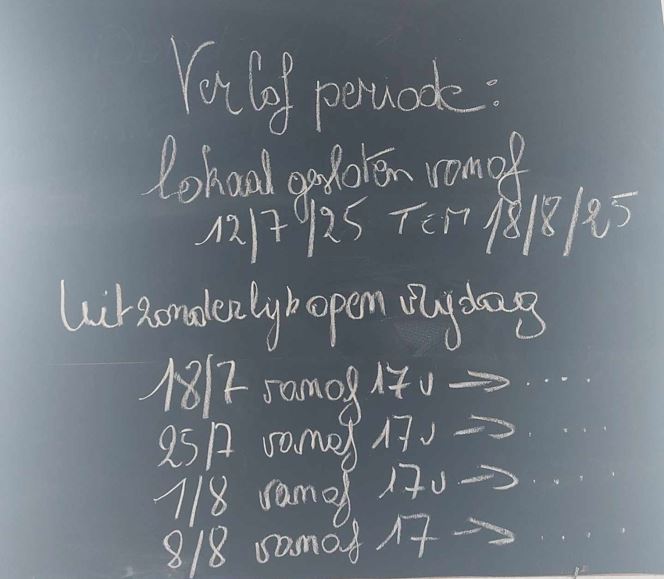 Verlof periode:
lokaal gesloten vanaf
12/7/25 TEM 18/8/25
Uitzonderlijk open vrijdag
18/7 vanaf 17u → ....
25/7 vanaf 17u → ....
1/8 vanaf 17u → .....
8/8 vanaf 17 → .....